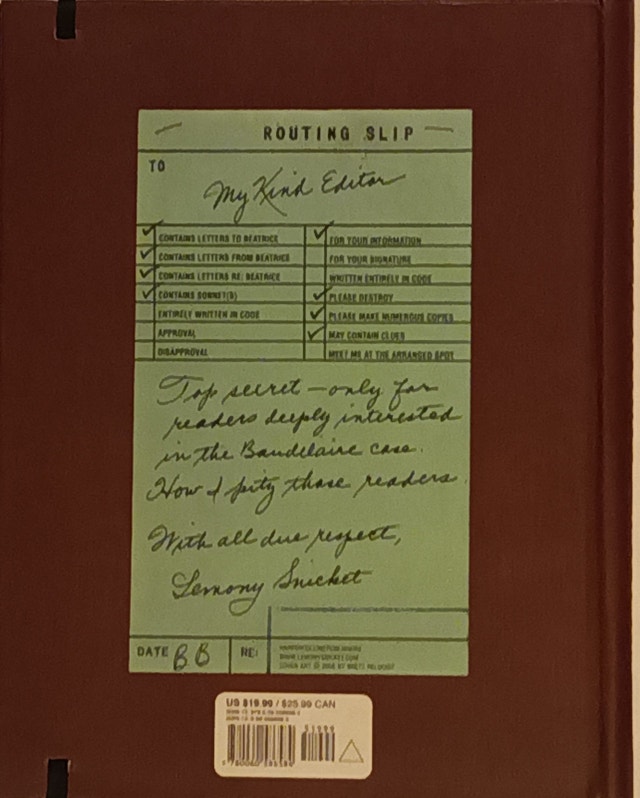 ROUTING SLIP
TO
My Kind Editor
CONTAINS LETTERS TO BEATRICE
FOR YOUR INFORMATION
CONTAINS LETTERS FROM BEATRICE
FOR YOUR SIGNATURE
CONTAINS LETTERS RE: BEATRICE
WRITTEN ENTIRELY IN CODE
CONTAINS SONNET(S)
PLEASE DESTROY
ENTIRELY WRITTEN IN CODE
PLEASE MAKE NUMEROUS COPIES
APPROVAL
MAY CONTAIN CLUES
DISAPPROVAL
MEET ME AT THE ARRANGED SPOT
Top secret – only for
readers deeply interested
in the Baudelaire case.
How I pity those readers.
With all due respect,
Lemony Snicket
DATE BB RE:
US $19.99 / $25.99 CAN
51999